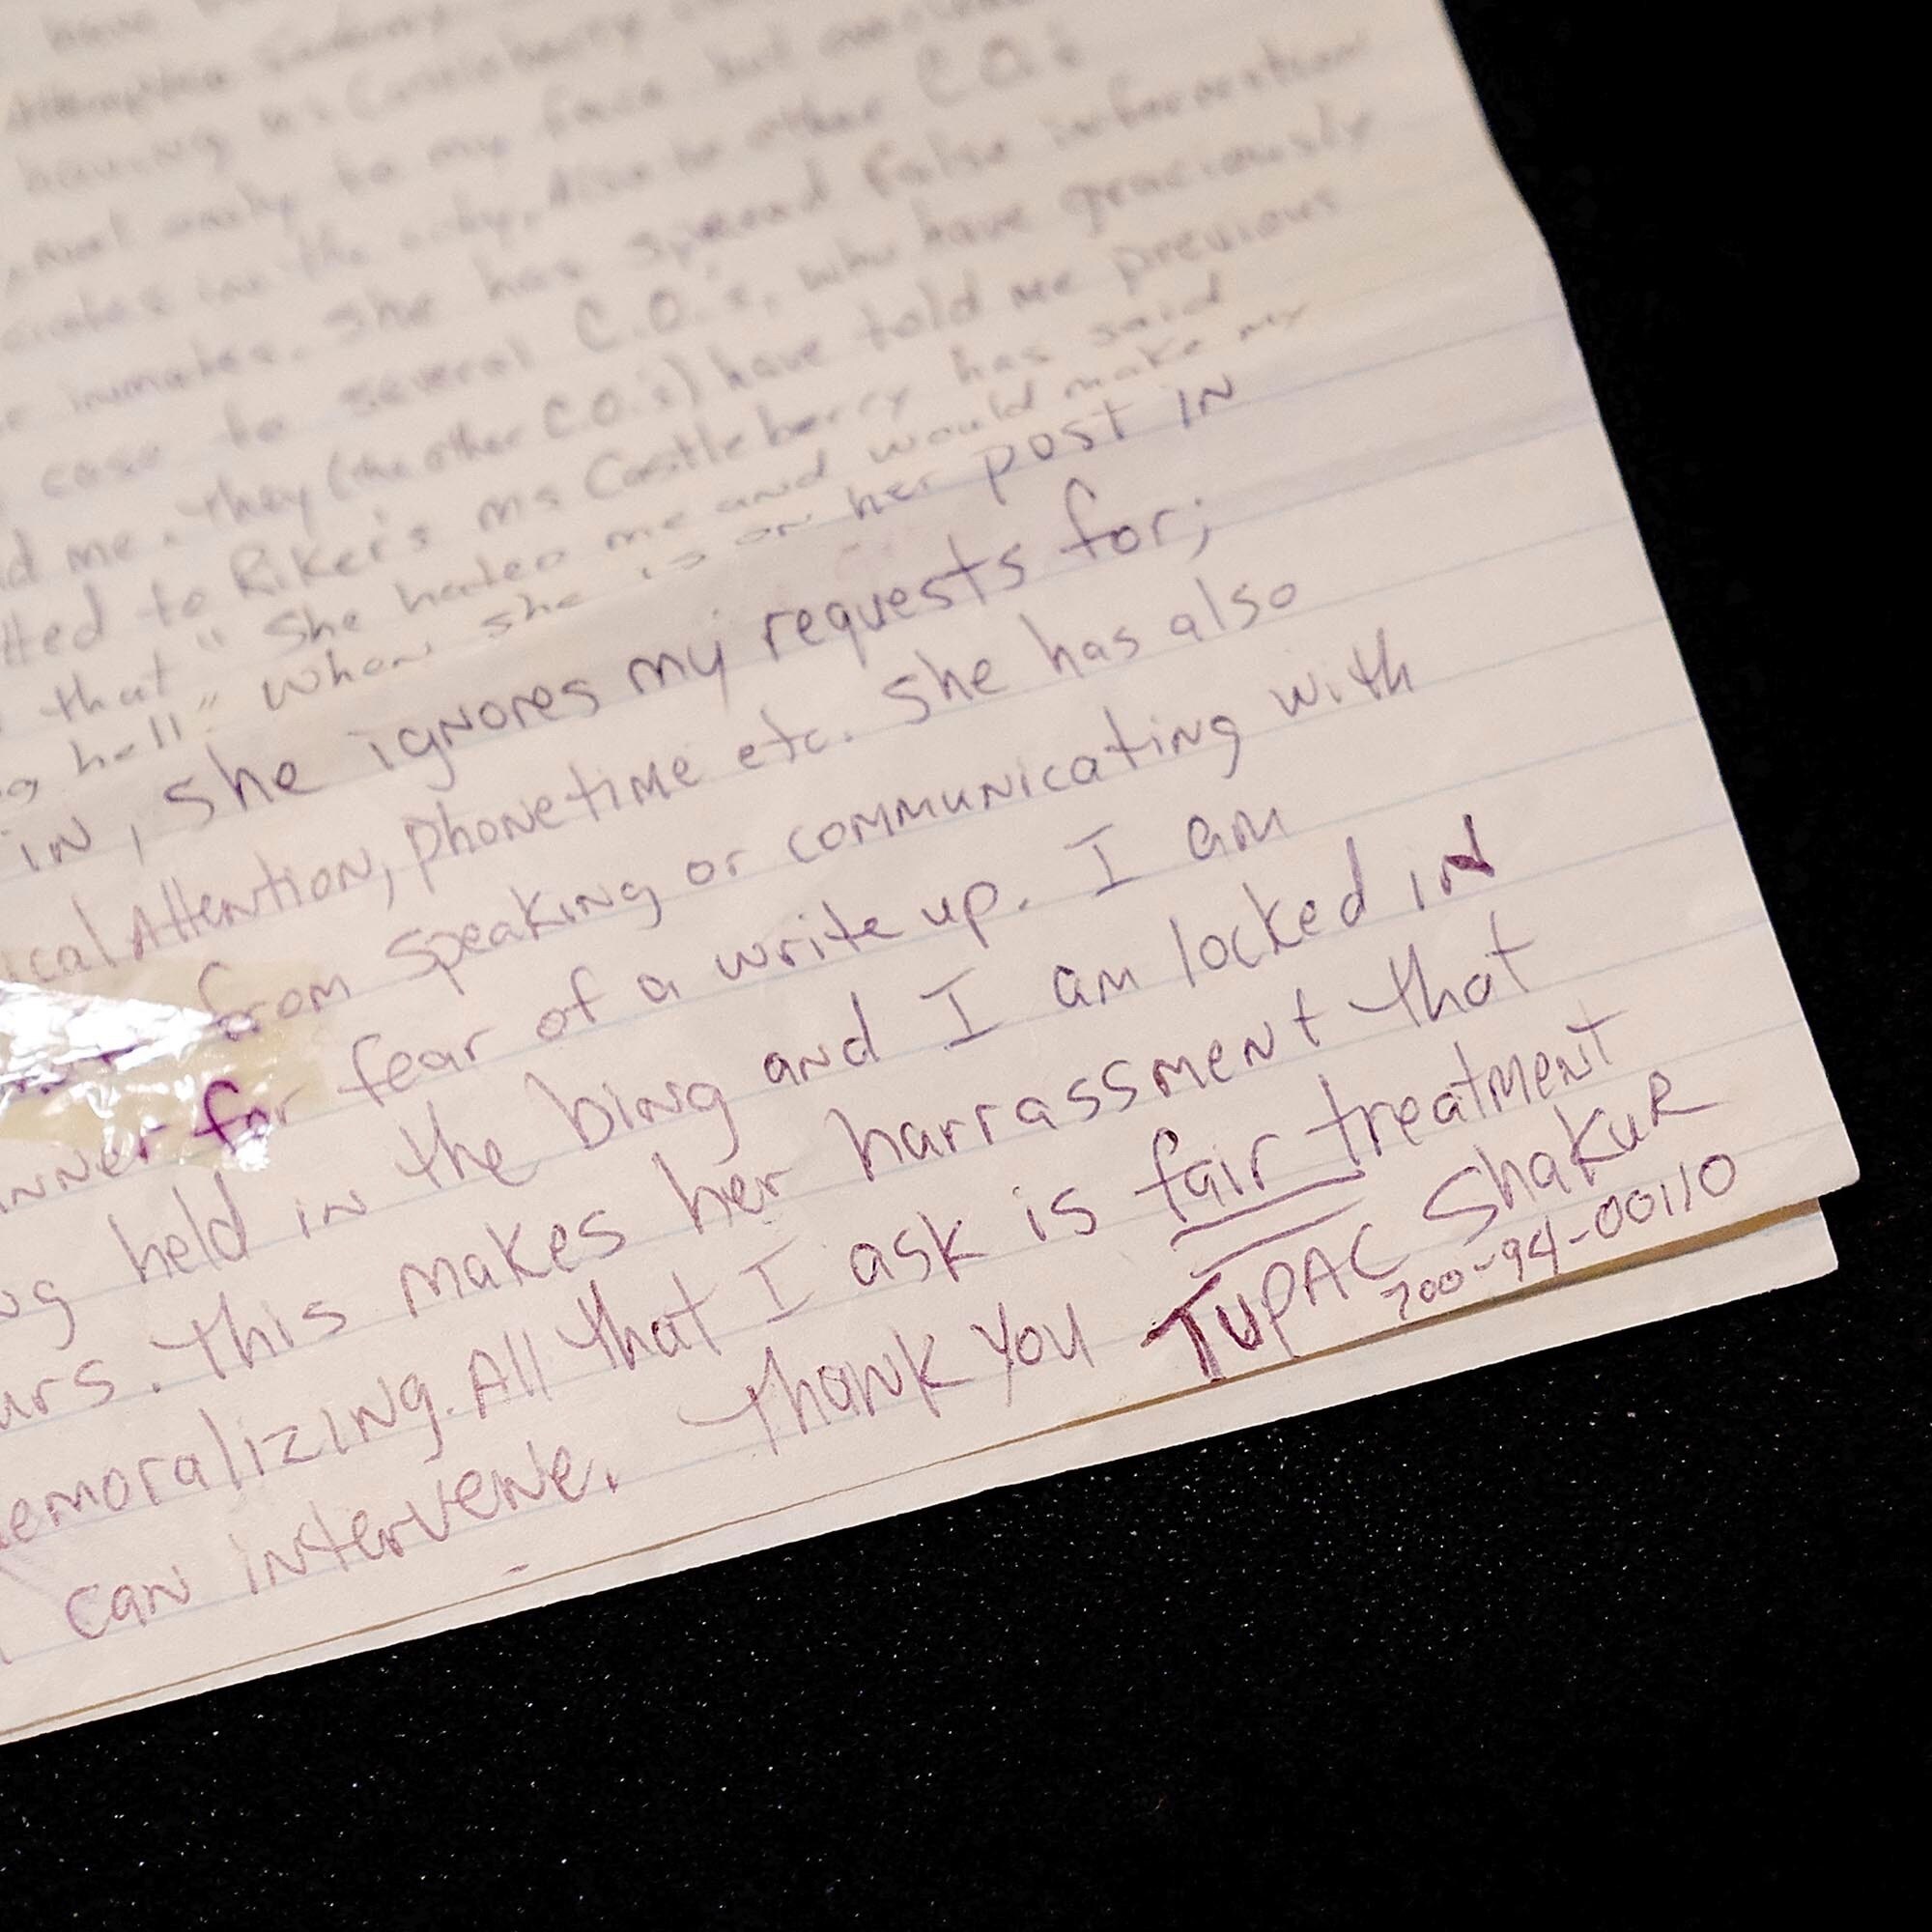 have
Attempted
having Ms Castleberry
, not only to my face but
in the city, Also to other C.O.s
inmates. She has spread false information
case to several C.O.'s, who have graciously
me. They (the other C.O.'s) have told me previous
to Riker's Ms Castleberry has said
that "She hated me and would make my
hell". When she is on her post in
in, She ignores my requests for;
Attention, phone time etc. She has also
from speaking or communicating with
for fear of a write up. I am
held in the bing and I am locked in
. This makes her harrassment that
emoralizing. All that I ask is fair treatment
can intervene. Thank you Tupac Shakur
700-94-00110